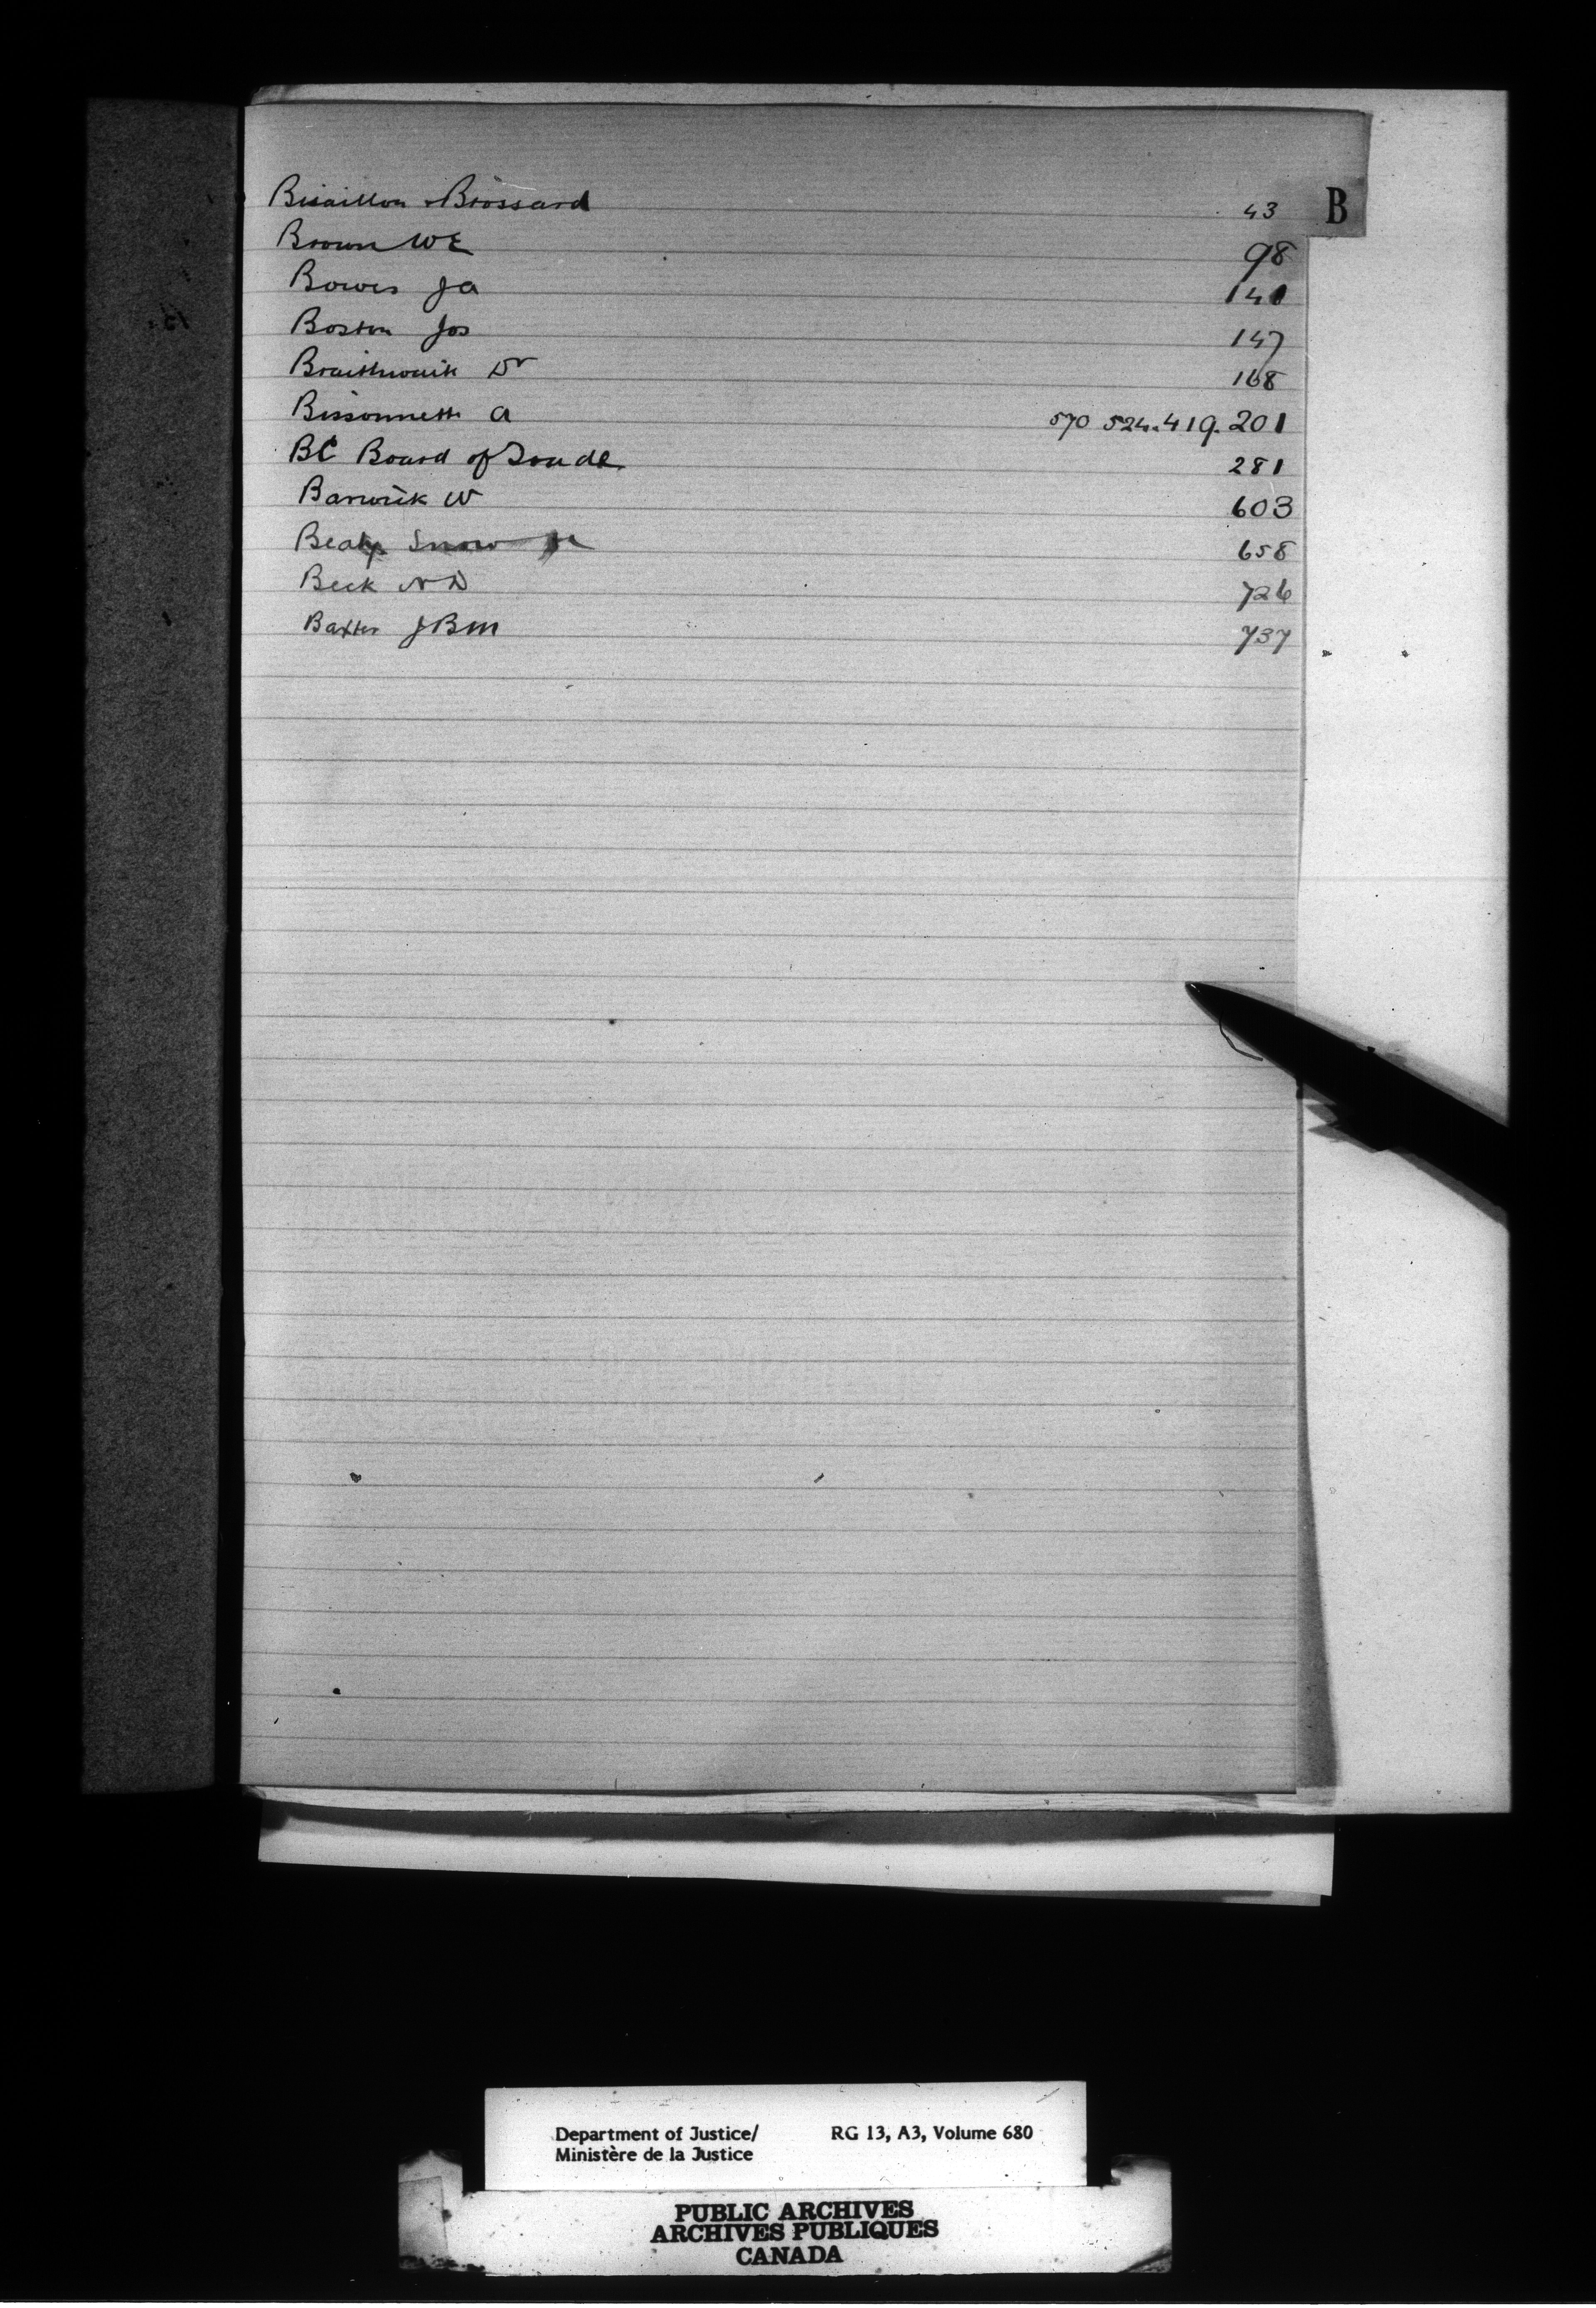 B
Bisaillon & Brossard 43
Brown WE 98
Bowes JA 141
Boston Jos 147
Braithwaite Dr 168
Bissonnette A 570 524.419.201
BC Board of Trade 281
Barwick W 603
Beaty Snow 658
Beck ND 726
Baxter JBM 737
Department of Justice/ RG 13, A3, Volume 680
Ministère de la Justice
PUBLIC ARCHIVES
ARCHIVES PUBLIQUES
CANADA